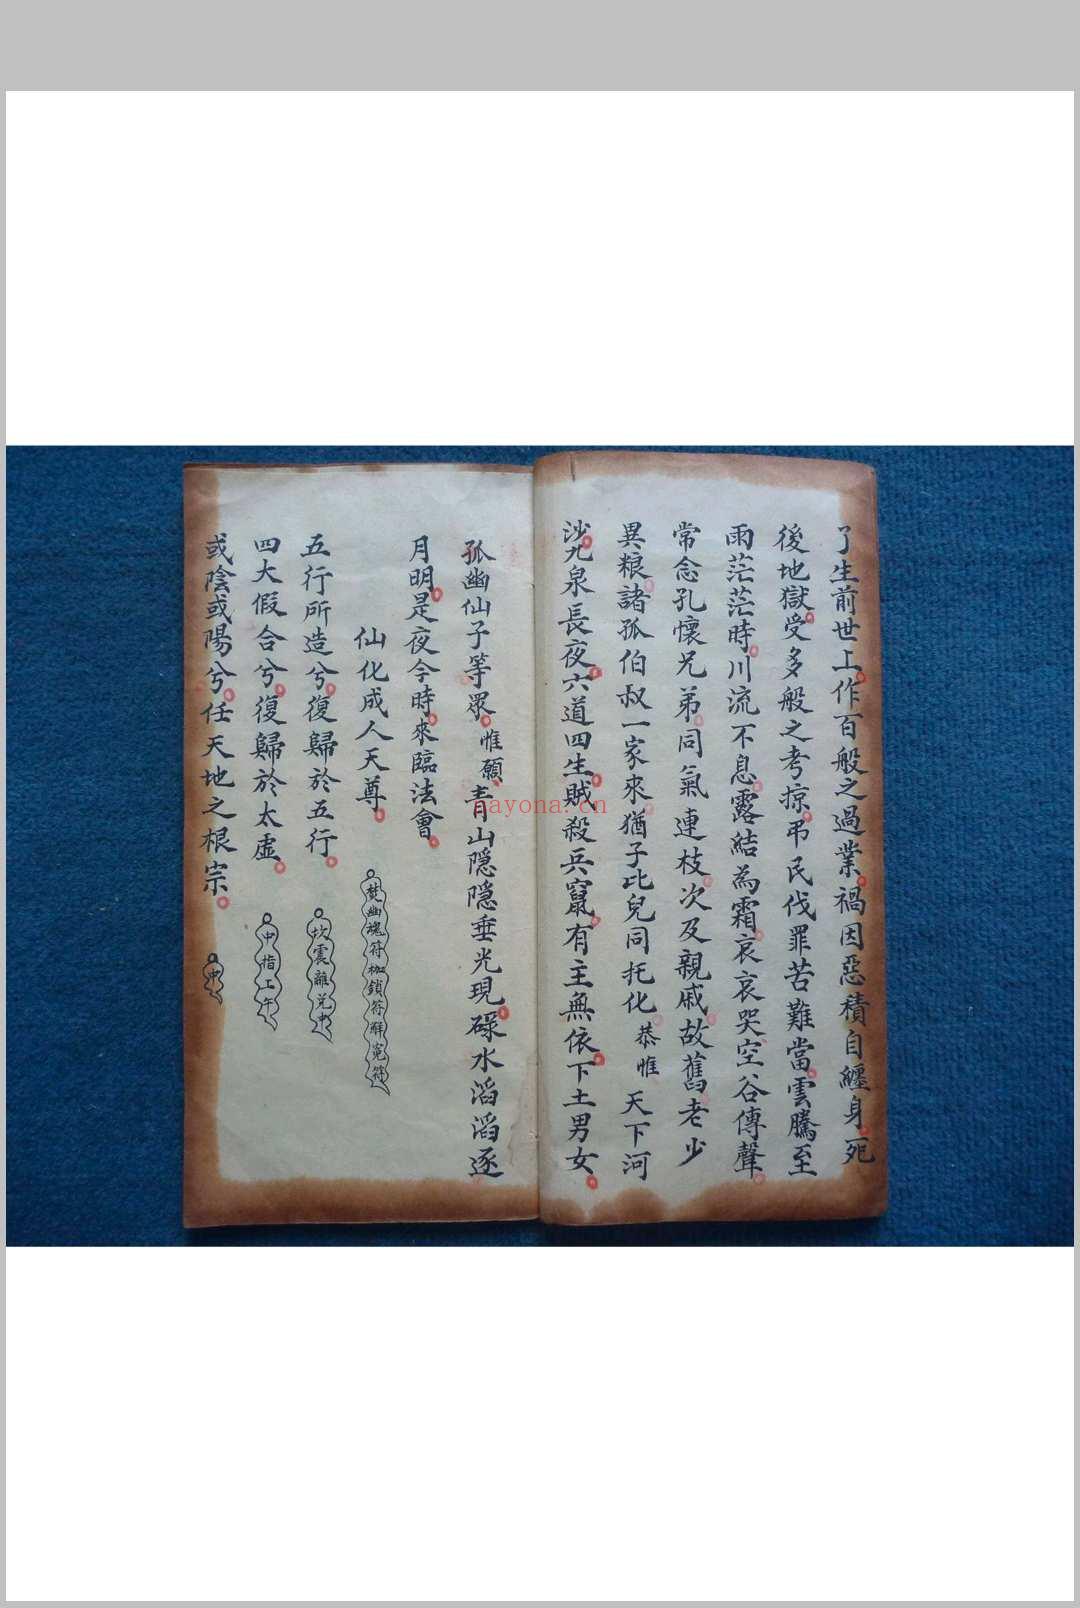 了生前世上作百般之過業禍因惡積自纏身死
後地獄受多般之考掠弔民伐罪苦難當雲騰至
雨茫茫時川流不息露結為霜哀哀哭空谷傳聲
常念孔懷兄弟同氣連枝次及親戚故舊老少
異粮諸孤伯叔一家來猶子比兒同托化恭惟天下河
沙九泉長夜六道四生賊殺兵竄有主無依下土男女
孤幽仙子等眾惟願青山隱隱垂光現碌水滔滔逐
月明是夜今時來臨法會
仙化成人天尊
焚幽魂符枷鎖符解冤符
五行所造兮復歸於五行
坎震離兌中
四大假合兮復歸於太虛
中指上午
或陰或陽兮任天地之根宗
中
nayona.cn